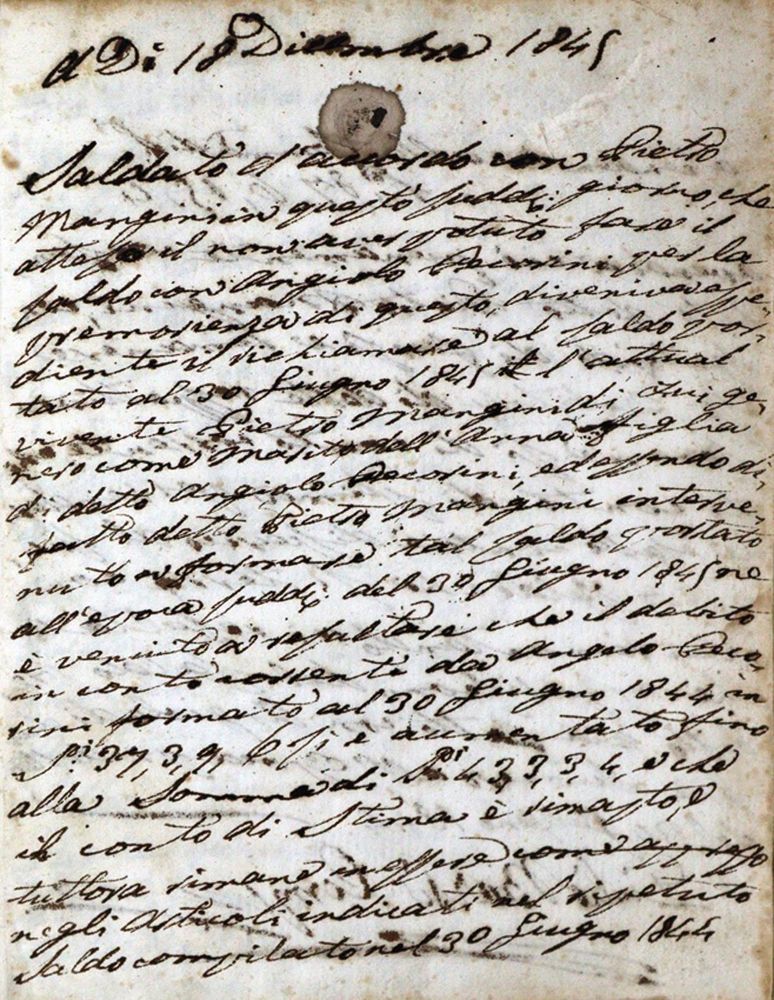 A Di 18 Dicembre 1845
Saldato d'accordo con Pietro
Mangini in questo sudd.º giorno, che
atteso il non aver potuto fare il
saldo con Angiolo Pecorini per la
premorienza di questo, diveniva espe-
diente il richiamare al saldo por-
tato al 30 Giugno 1845 l'attual
vivente Pietro Mangini di Lui ge-
nero come marito dell'Anna figlia
di detto Angiolo Pecorini, ed essendo di
fatto detto Pietro Mangini interve-
nuto a formare tal saldo portato
all'epoca sudd.ª del 30 Giugno 1845 ne
è venuto a resultare che il debito
in conto corrente da Angelo Peco-
rini formato al 30 Giugno 1844 in
P.i 37, 3, 9, si è aumentato fino
alla Somma di P.i 43, 3, 4, e che
il conto di Stima è rimasto, e
tuttora rimane in essere come appresso
negli Articoli indicati nel ripetuto
Saldo compilato nel 30 Giugno 1844